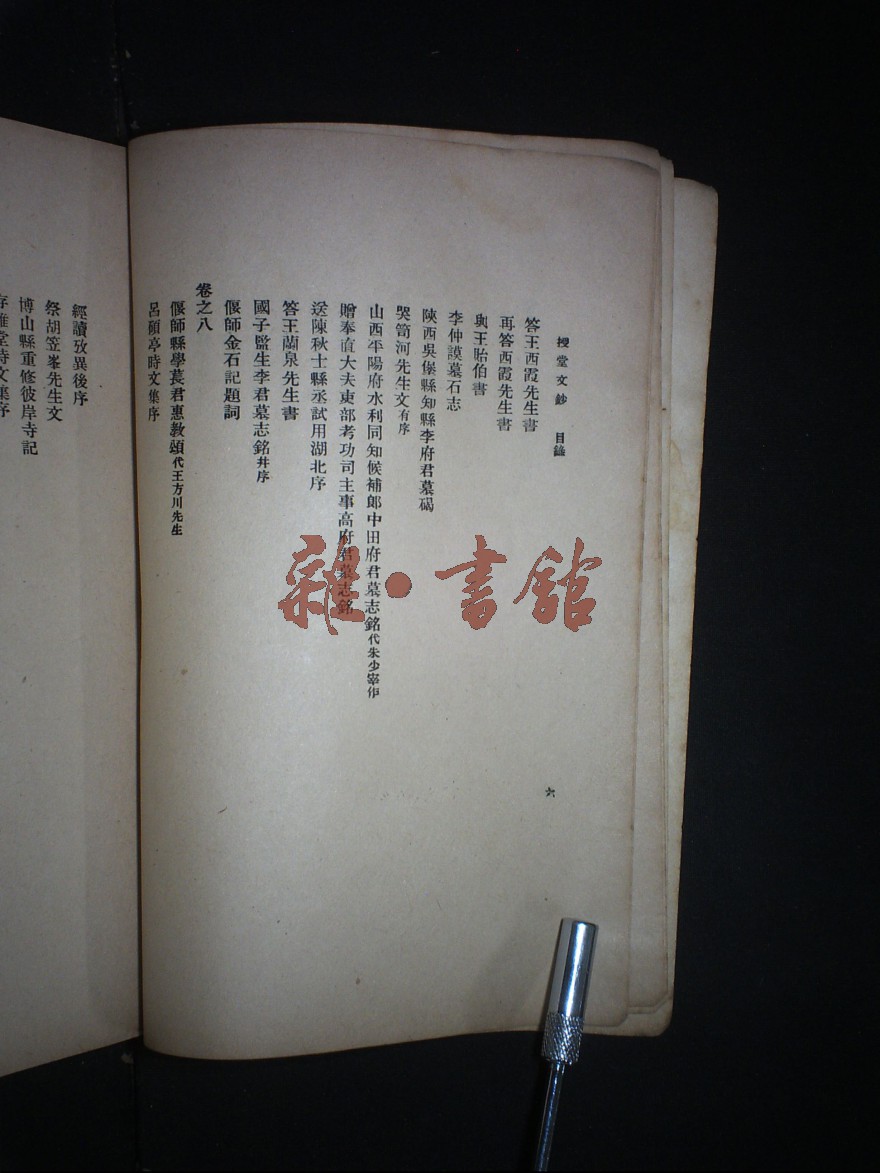 授堂文鈔 目錄
答王西霞先生書
再答西霞先生書
與王貽伯書
李仲謨墓石志
陝西吳堡縣知縣李府君墓碣
哭笥河先生文有序
山西平陽府水利同知候補郎中田府君墓志銘代朱少宰作
贈奉直大夫吏部考功司主事高府君墓志銘
送陳秋士縣丞試用湖北序
答王蘭泉先生書
國子監生李君墓志銘并序
偃師金石記題詞
卷之八
偃師縣學萇君惠教頌代王方川先生
呂碩亭時文集序
六
經讀攷異後序
祭胡笠峯先生文
博山縣重修彼岸寺記
堂時文集序
雜·書館